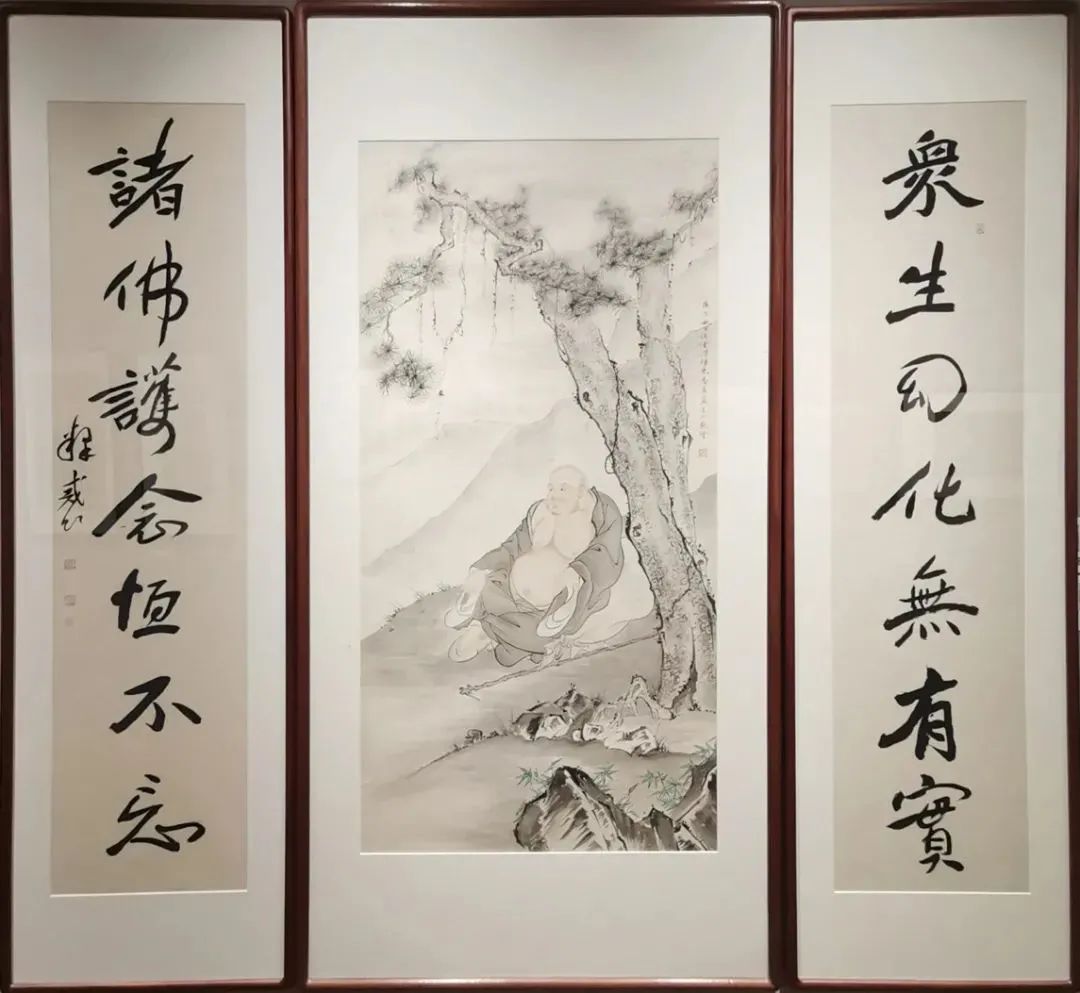 眾生幻化無有實
諸佛護念恒不忘
釋戒